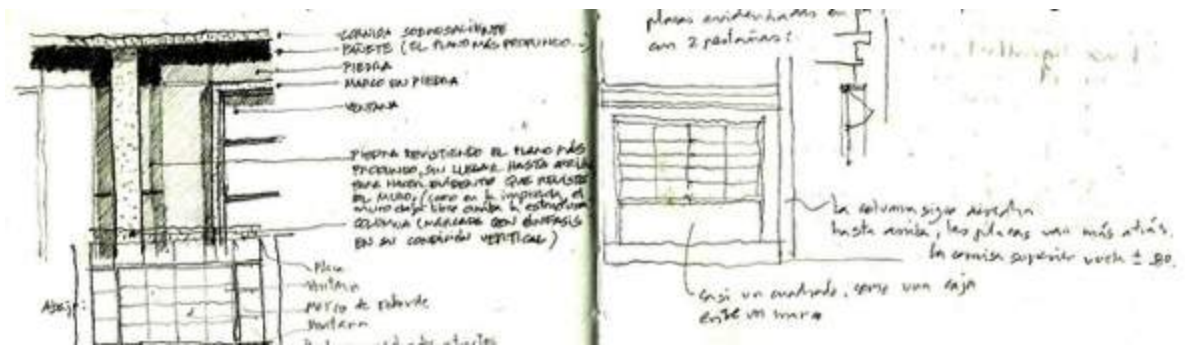 CORNISA SOBRESALIENTE
PAÑETE (EL PLANO MÁS PROFUNDO...
PIEDRA
MARCO EN PIEDRA
VENTANA
PIEDRA REVISTIENDO EL PLANO MÁS
PROFUNDO, SIN LLEGAR HASTA ARRIBA
PARA HACER EVIDENTE QUE REVISTE
EL MURO, (como en la imprenta, el
muro deja libre arriba la estructura
COLUMNA (MARCADA CON ÉNFASIS
EN SU CONDICIÓN VERTICAL)
Abajo:
Placa
Ventana
marco de
Ventana
placas evidenciadas en
con 2 pestañas:
La columna sigue derecha
hasta arriba, las placas van más atrás.
La cornisa superior vuela ± .80.
casi un cuadrado, como una caja
entre un marco